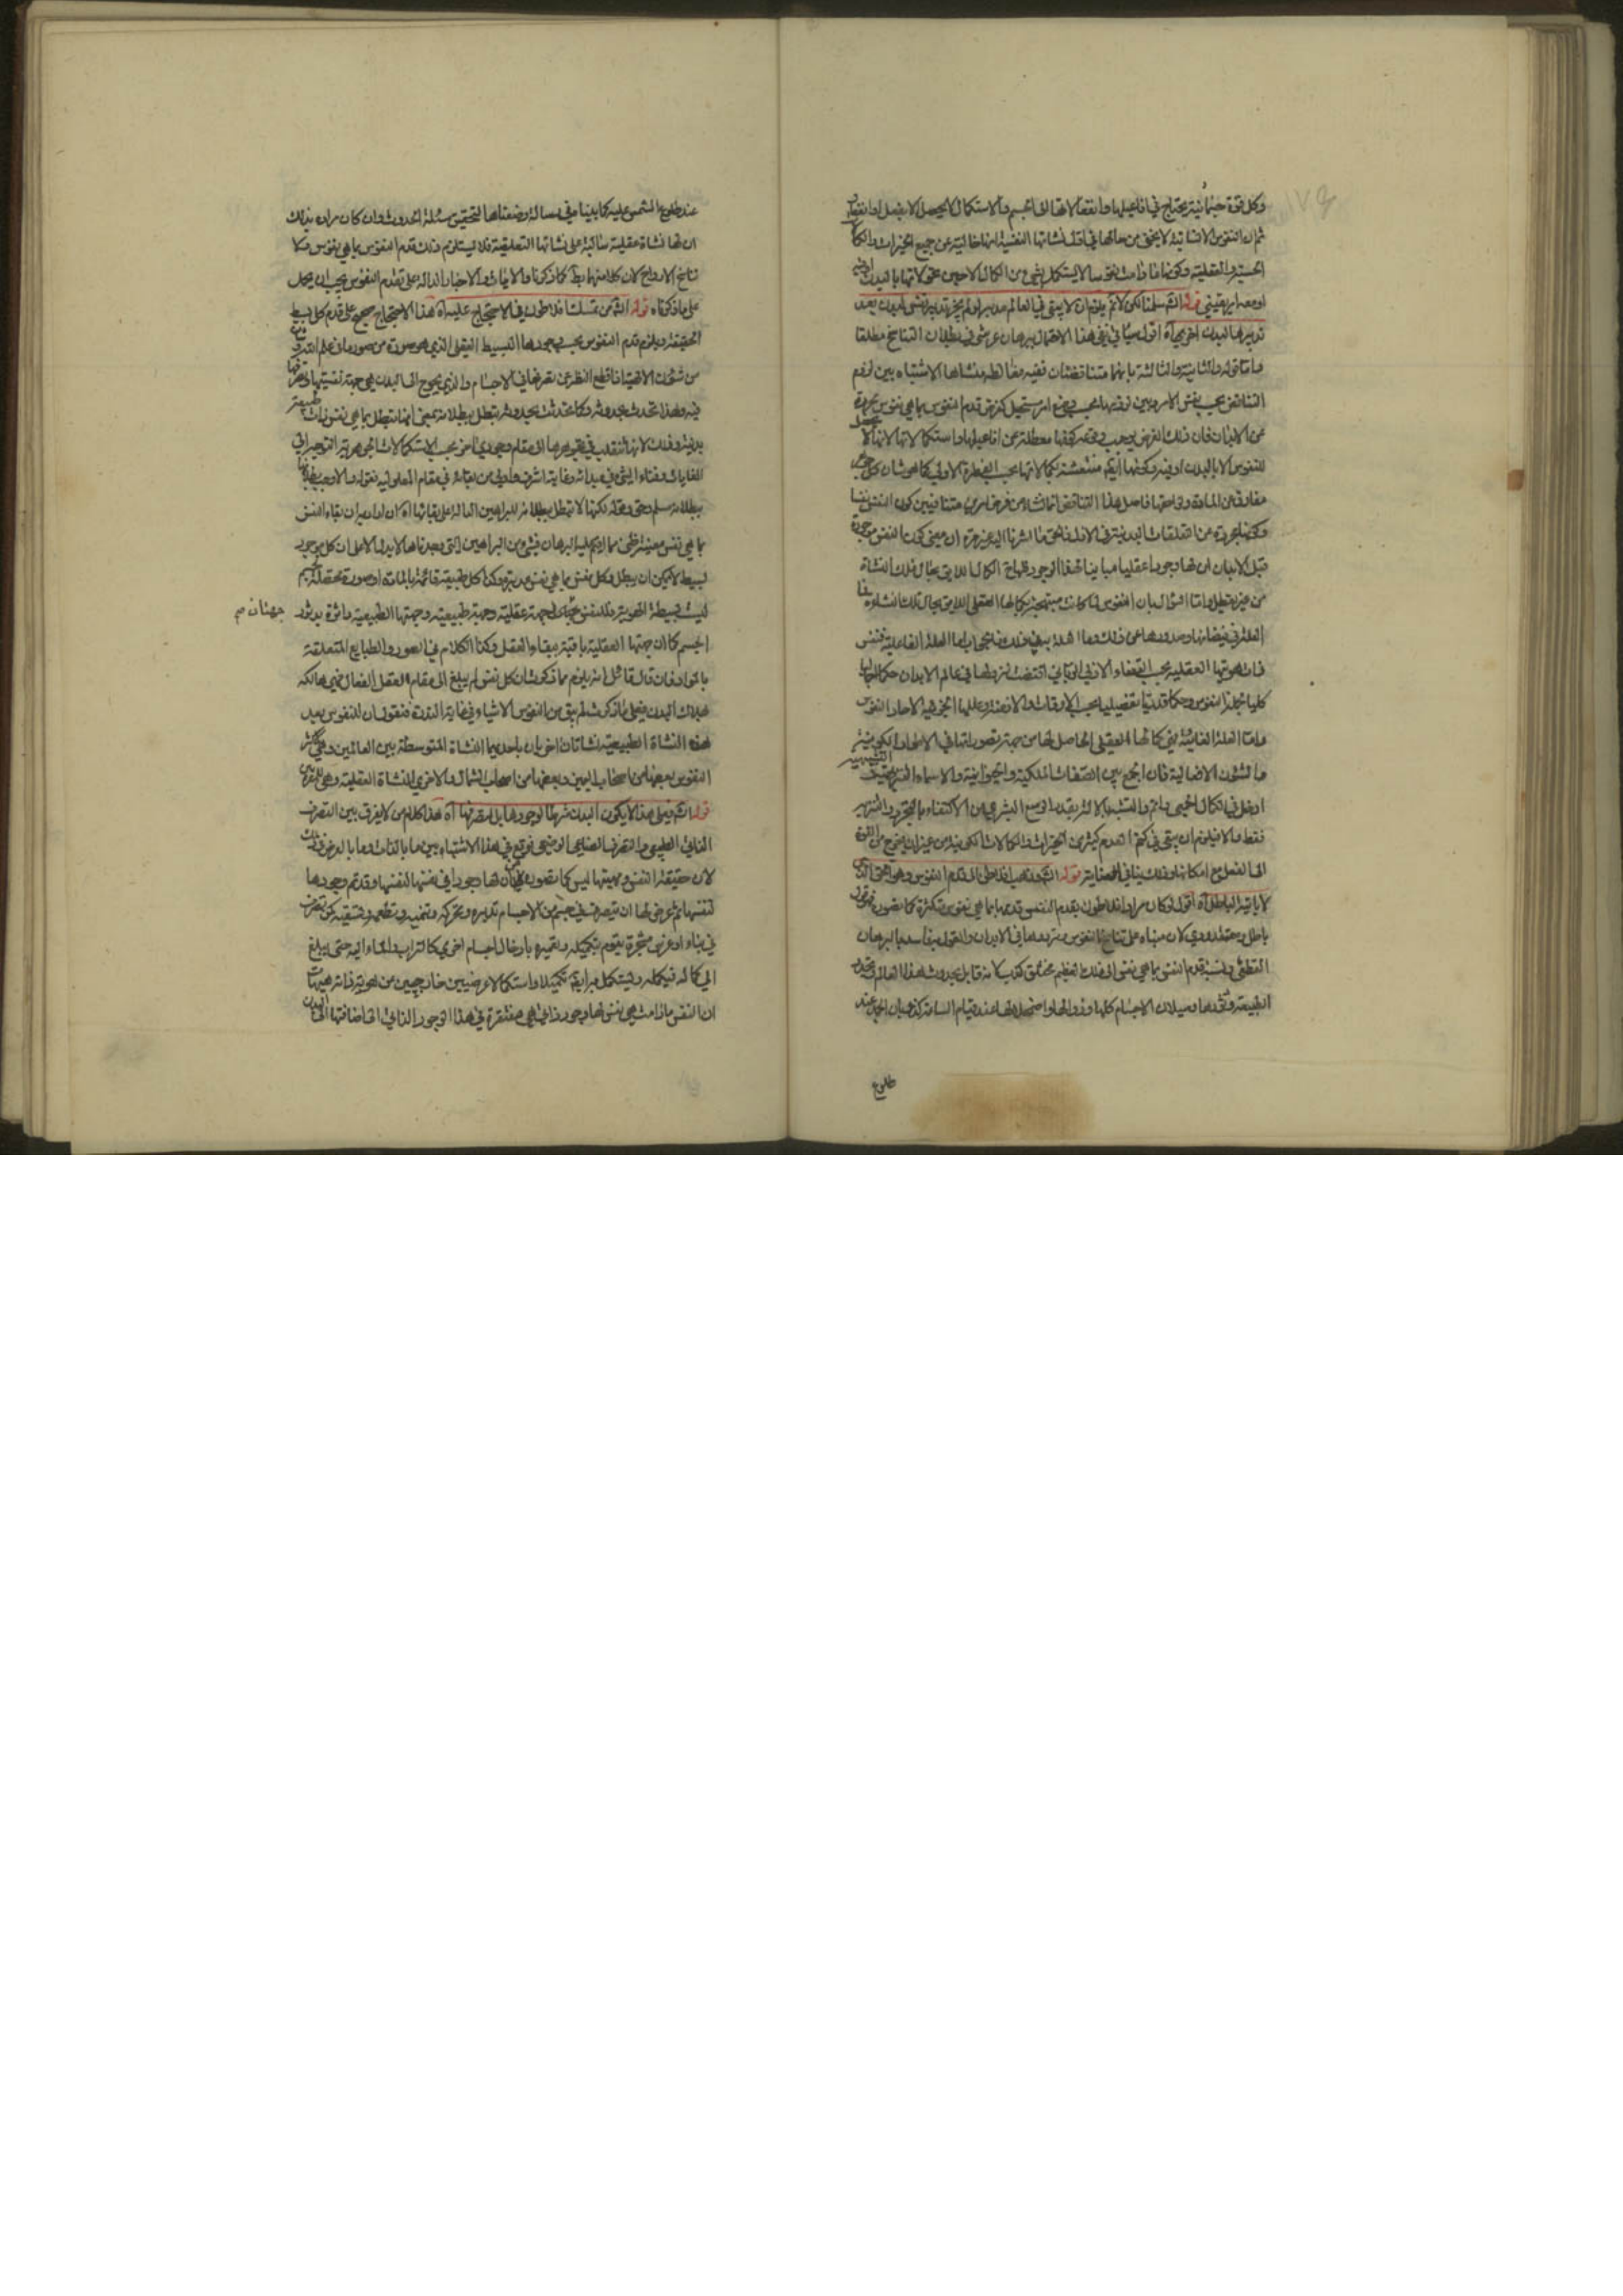 وكل قوة جسمانية يحتاج في افاعيلها وانفعالاتها الى الجسم والاستكمال لا يحصل الا بفعل او انفعال
ثم ان النفوس الانسانية لا يخفى من حالها في اول نشأتها النفسية انها خالية عن جميع الخيرات والكمالات
الحسية والعقلية وكونها ما دامت نفوسا لا يستكمل بشيء من الكمال الا حين تعلقها بالبدن
او معه امر يقيني قوله الشـ سلمنا لكن لا ثم يلزم ان لا يبقى في العالم مدبر او لم يجز تدبير نفس لبدن بعد
تدبيرها لبدن اخر بها آه اقول سيأتي في نفي هذا الاحتمال برهان عرشي في بطلان التناسخ مطلقا
واما قوله والثانية والثالثة بانهما متناقضتان ففيه مغالطة منشاها الاشتباه بين لزوم
التناقض بحسب نفس الامر وبين لزومه بحسب وضع امر مستحيل كفرض قدم النفوس بما هي نفوس مجردة
عن الابدان فان ذلك الفرض يوجب كونها معطلة عن افاعيلها واستكمالاتها لانها لا تحصل
للنفوس الا بالبدن او فيه وكونها ايضا منتقشة بكمالاتها بحسب الفطرة الاولى كما هو شان كل جوهر
مفارق عن المادة ولواحقها فاصل هذا التناقض انما نشاء من فرض امرين متنافيين كون النفس نفسا
وكونها مجردة عن التعلقات البدنية في الازل فالحق ما اشرنا اليه غير مرة ان معنى كون النفس موجودة
قبل الابدان ان لها وجودا عقليا مباينا لهذا الوجود ولها الكمال اللايق بحال تلك النشاة
من غير تعطيل واما السؤال بان النفوس لما كانت مبتهجة بكمالها العقلي اللايق بحال تلك النشاة فما
العلة في فيضانها وصدورها عن ذلك وما
فان هويتها العقلية بحسب القضاء الازلي الرباني اقتضت نزولها في عالم الابدان حكما اجماليا
كليا لجملة النفوس وحكما قدريا تفصيليا بحسب الاوقات والازمنة وعللها الجزئية لاحاد النفوس
واما العلة الغائية فهي كمالها العقلي الحاصل لها من جهة تصوراتها في الاطوار الكونية
والشئون الاضافية فان الجمع بين الصفات الملكية والحيوانية والاسماء التنزيهية والتشبيهية
ادخل في الكمال الجمعي واتم والتشبه بالاله بقدر الوسع البشري من الاكتفاء بالتجرد والتنزيه
فقط والا فيلزم ان يبقى في كتم العدم كثير من الخيرات والكمالات الكونية من غير ان يخرج من القوة
الى الفعل مع امكانها وذلك ينافي العناية قوله الشـ وذهب افلاطن الى قدم النفوس وهو الحق الذي
لا ياتيه الباطل آه اقول ان كان مراد افلاطون بقدم النفس قدمها بما هي نفوس متكثرة كما تصوره فهو قول
باطل ومعتقد ردي لان مبناه على تناسخ النفوس وترددها في الابدان والقول به فاسد بالبرهان
القطعي ونسبة قدم النفس بما هي نفس الى ذلك العظيم مختلق كذب لانه قايل بحدوث هذا العالم وتجدد
الطبيعة ودثورها وسيلان الاجسام كلها وزوالها واضمحلالها عند قيام الساعة كذوبان الجمد عند
طلوع
عند طلوع الشمس عليه كما بيناه في رسالة وضعناها لتحقيق مسئلة الحدوث وان كان مراده بذلك
ان لها نشاة عقلية سابقة على نشاتها التعلقية فلا يستلزم ذلك قدم النفوس بما هي نفوس ولا
تناسخ الارواح لان كلا منهما باطل كما ذكرنا والايات والاخبار الدالة على تقدم النفوس يجب ان يحمل
على ما ذكرناه قوله الشـ من تمسكات افلاطون في الاحتجاج عليه آه هذا الاحتجاج صحيح على قدم كل بسيط
الحقيقة ويلزم قدم النفوس بحسب جوهرها البسيط العقلي الذي هو صورة من صور ما في علم الله وشان
من شئونه الالهية اذا قطع النظر عن تصرفها في الاجسام والذي يحوج الى البدن هي جهة نفسيتها وتصرفها
فيه ولهذا تحدث بحدوثه وكما تحدث بحدوثه تبطل ببطلانه بمعنى انها تبطل بما هي نفس ذات طبيعة
بدنية وذلك لانها تنقلب في جوهرها الى مقام وجودي اخر بحسب الاستكمالات الجوهرية المتوجهة الى
الغايات وفناء الشيء في مبدائه وغايته اشرف واولى من بقائه في مقام المعلولية فقوله والا وجب بطلانها
ببطلانه مسلم وحق وقوله لكنها لا تبطل ببطلانه للبراهين الدالة على بقائها آه ان اراد به ان بقاء النفس
بما هي نفس معينة شخصية مما اقيم عليه البرهان فشيء من البراهين التي وجدناها لا يدل الا على ان كل موجود
بسيط لا يمكن ان يبطل وكل نفس بما هي نفس مدبرة وكذا كل طبيعة قائمة بالمادة او صورة محصلة لجسم
ليست بسيطة الهوية فللنفس جهتان جهة عقلية وجهة طبيعية وجهتها الطبيعية داثرة بدثور
جهتان صح
الجسم كما ان جهتها العقلية باقية ببقاء العقل وكذا الكلام في الصور والطبايع المتعلقة
بالمواد فان قال قائل انه يلزم مما ذكرت ان كل نفس لم يبلغ الى مقام العقل الفعال فهي هالكة
بهلاك البدن فعلى ما ذكرت لم يبق من النفوس الا شيء في غاية الندرة فنقول ان للنفوس بعد
هذه النشاة الطبيعية نشاتان اخريان احديهما النشاة المتوسطة بين العالمين وهي لاكثر
النفوس بعضها من اصحاب اليمين وبعضها من اصحاب الشمال والاخرى النشاة العقلية وهي للمقربين
قوله الشـ فعلى هذا لا يكون البدن شرطا لوجودها بل لتصرفها آه هذا كلام من لا يفرق بين التصرف
الذاتي الطبيعي والتصرف الصناعي العرضي فوقع في هذا الاشتباه بين ما بالذات وما بالعرض وذلك
لان حقيقة النفس وماهيتها ليس كما تصوره من ان لها وجودا في نفسها لنفسها وقد تم وجودها
لنفسها ثم عرض لها ان تتصرف في جسم من الاجسام تدبره وتحركه وتنميه وتطعمه وتسقيه كمن تصرف
في بناء او غرس شجرة يقوم بتكميله وتعميره بادخال اجسام اخرى كالتراب والماء اليه حتى يبلغ
الى كماله فيكمله ويستكمل به ايضا تكميلا واستكمالا عرضيين خارجيين من هوية ذاته هيهات
ان النفس ما دامت هي نفس لها وجود ذاتي هي مفتقرة في هذا الوجود الذاتي الى اضافتها الى البدن